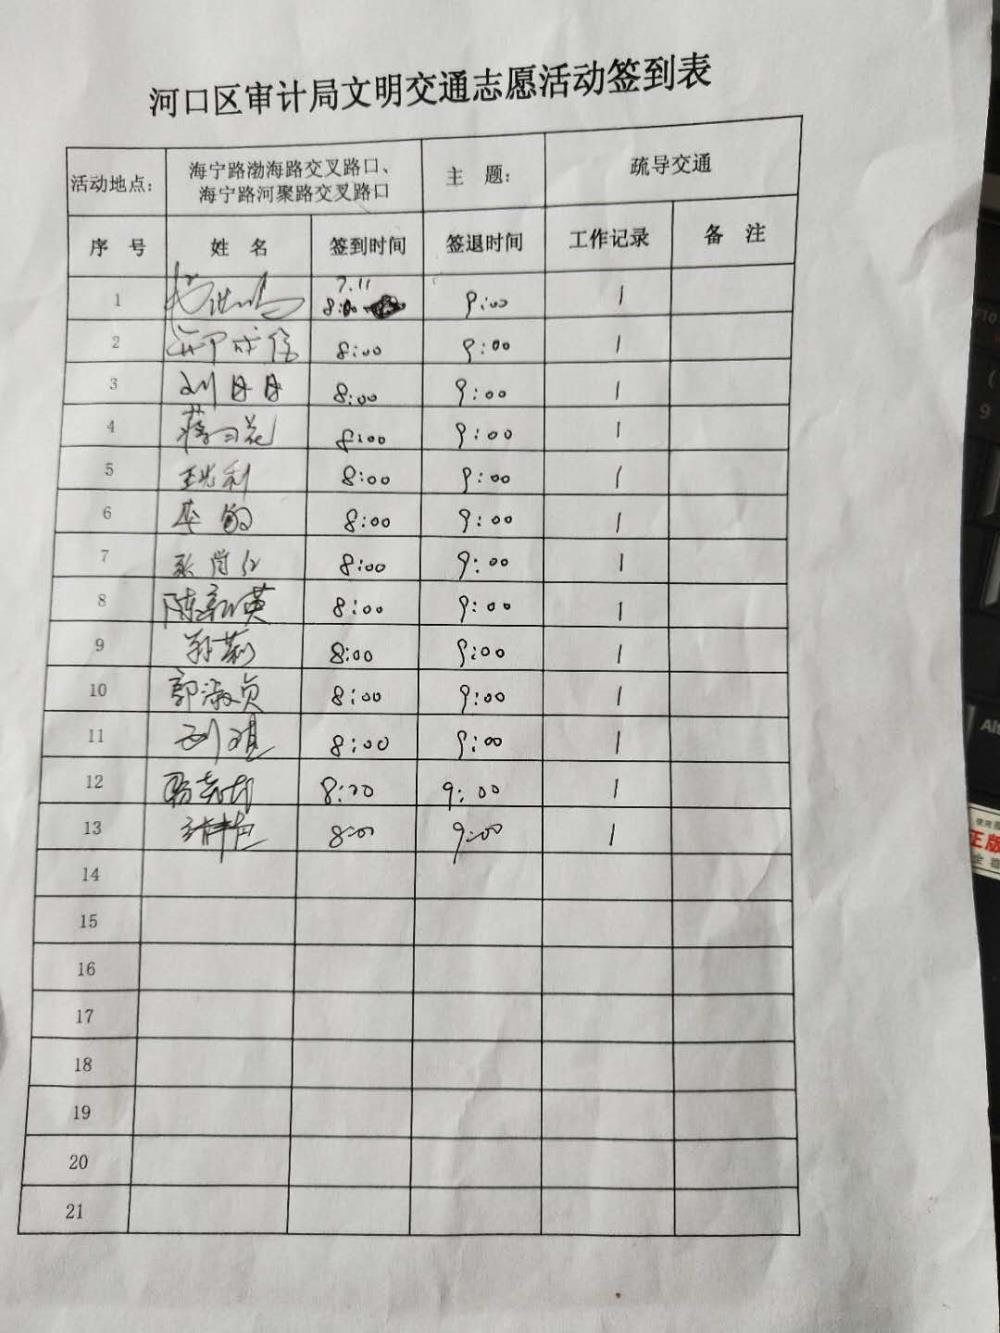 河口区审计局文明交通志愿活动签到表
活动地点： 海宁路渤海路交叉路口、 主 题： 疏导交通
海宁路河聚路交叉路口
序 号 姓 名 签到时间 签退时间 工作记录 备 注
7.11
1 8:00 9:00 1
2 8:00 9:00 1
3 刘 8:00 9:00 1
4 蒋 花 8:00 9:00 1
5 利 8:00 9:00 1
6 李 8:00 9:00 1
7 8:00 9:00 1
8 陈 英 8:00 9:00 1
9 孙莉 8:00 9:00 1
10 郭淑贞 8:00 9:00 1
11 刘琪 8:00 9:00 1
12 8:00 9:00 1
13 8:00 9:00 1
14
15
16
17
18
19
20
21
F10
9
Alt
正版